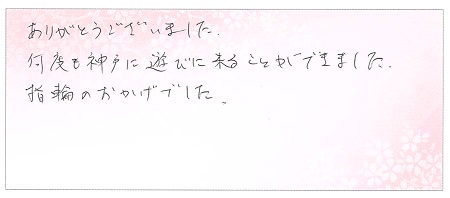 ありがとうございました.
何度も神戸に遊びに来ることができました.
指輪のおかげでした。